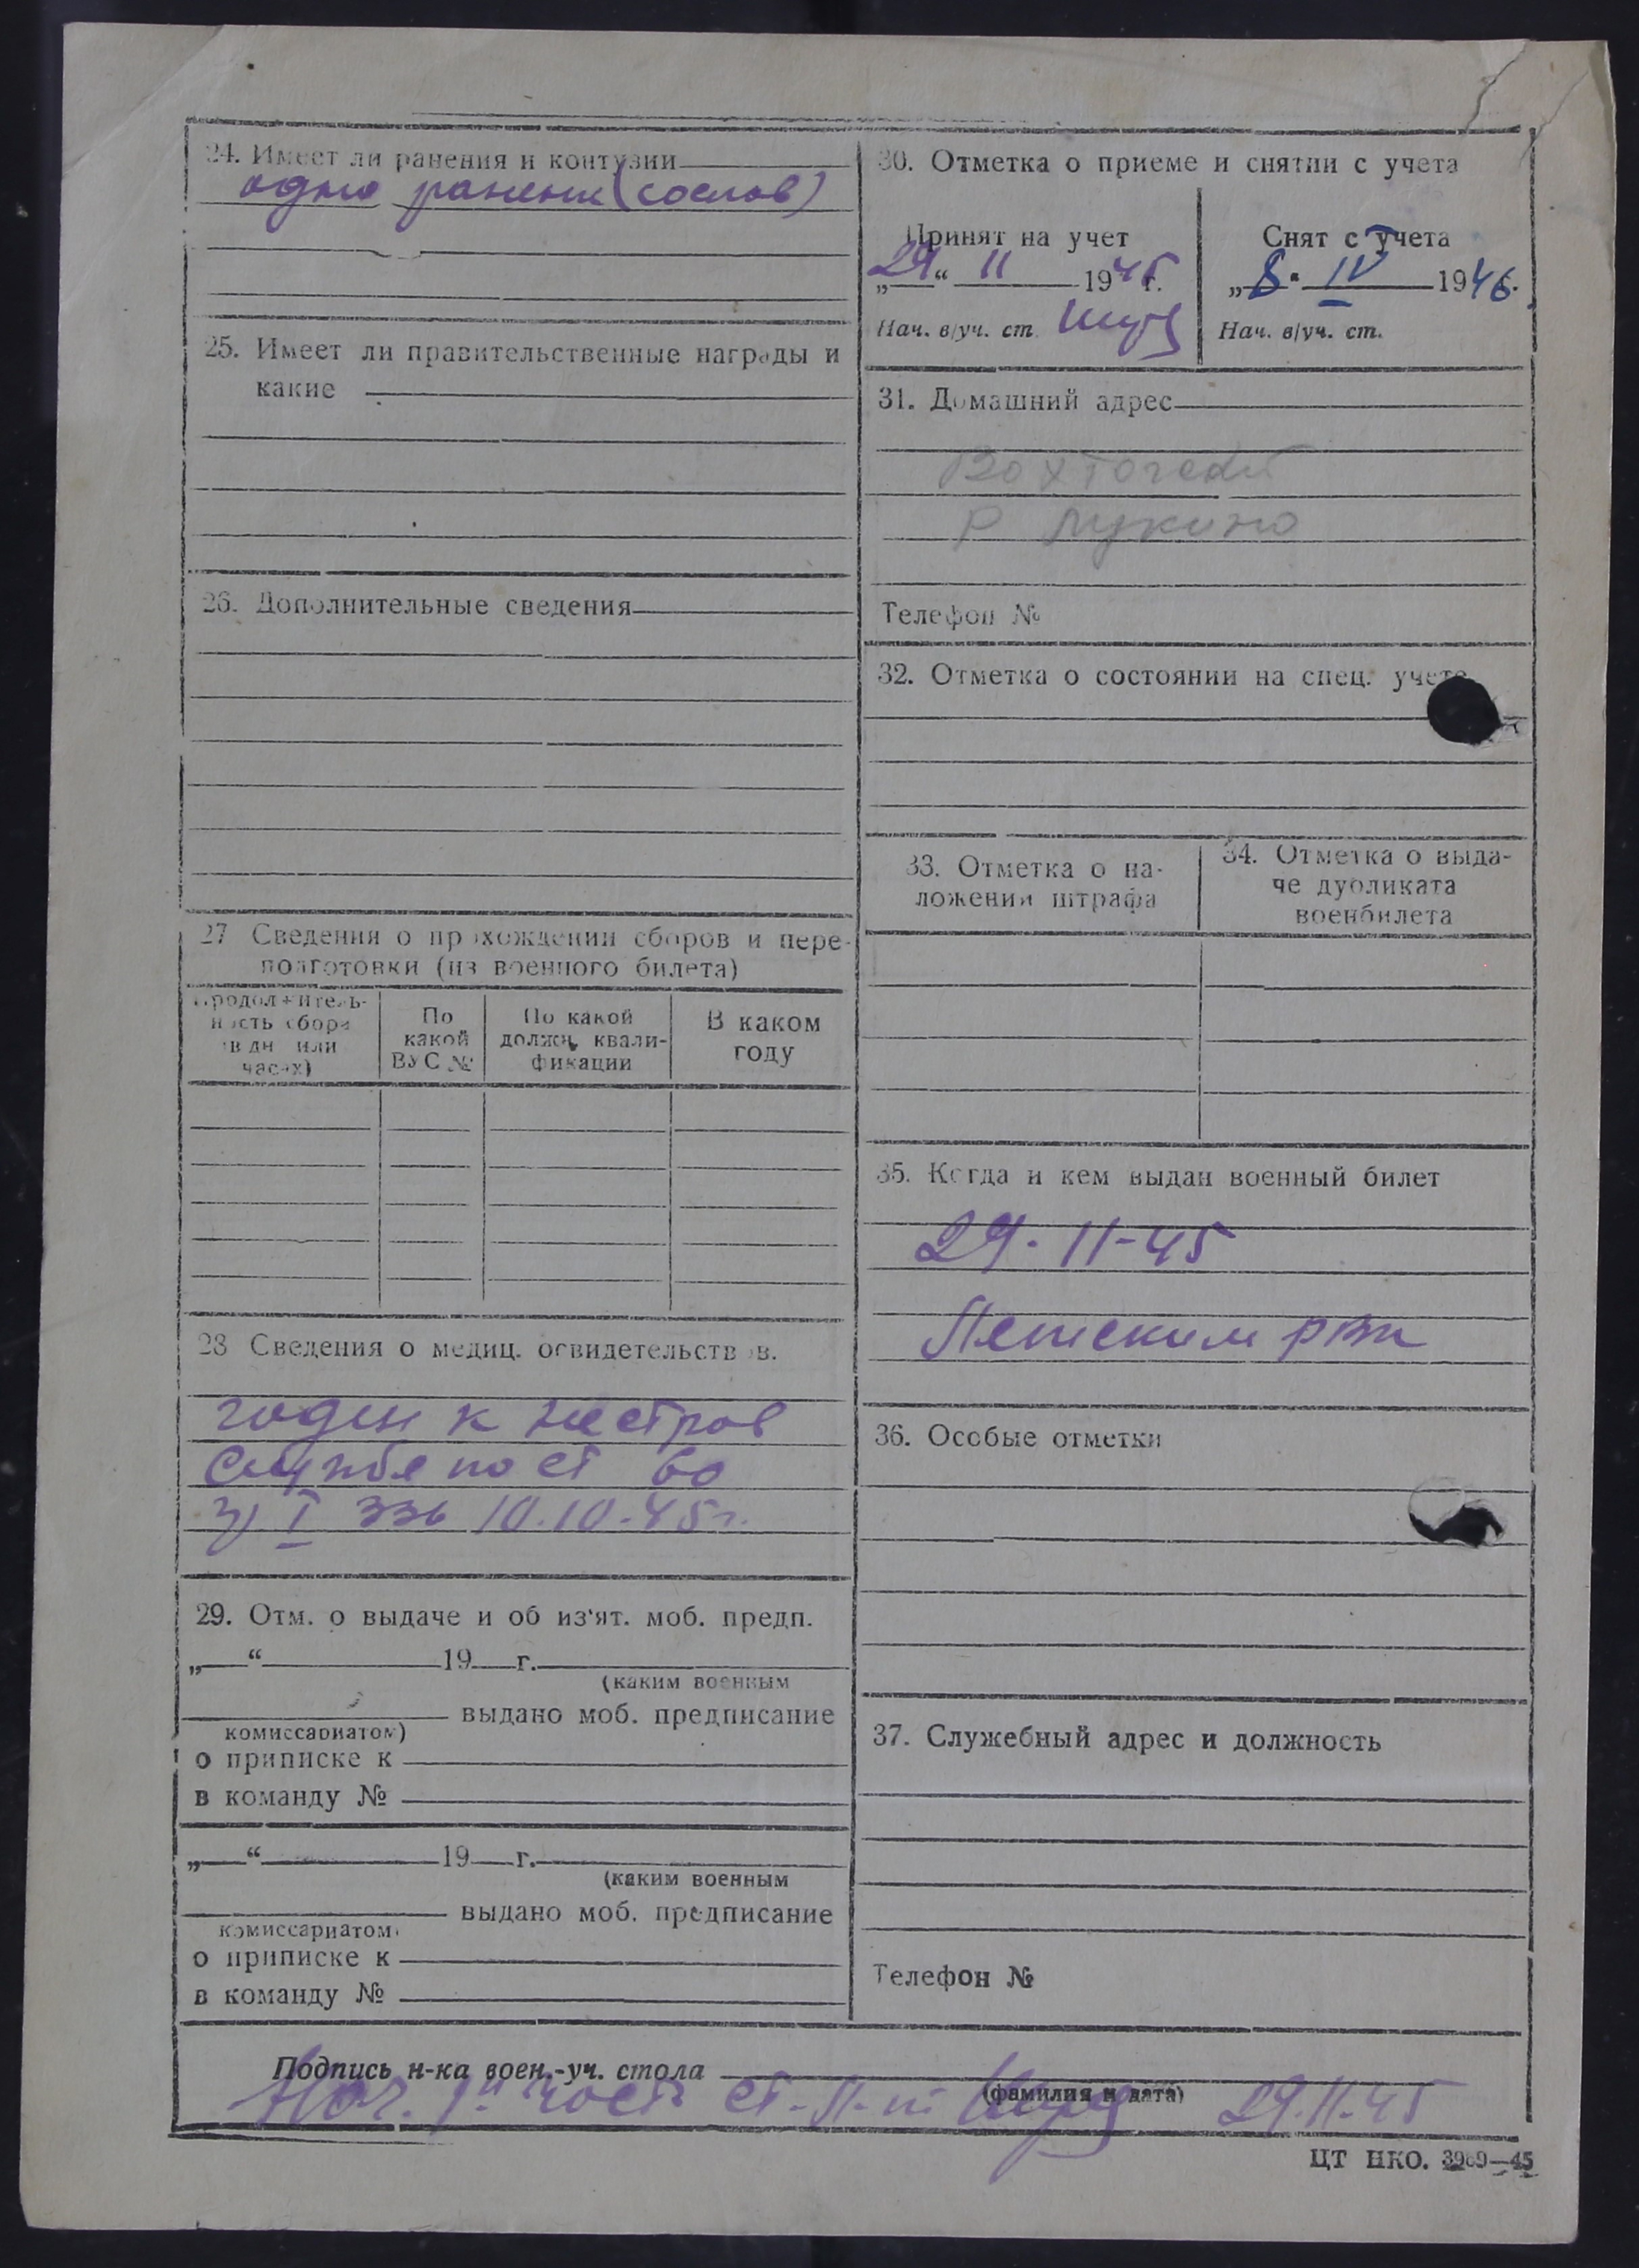 24. Имеет ли ранения и контузии
одно ранение
25. Имеет ли правительственные награды и
какие
26. Дополнительные сведения
27 Сведения о прохождении сборов и пере-
подготовки (из военного билета)
Продолжитель-
ность сбора
(в дн. или
часах)
По
какой
ВУС №
По какой
должн. квали-
фикации
В каком
году
28 Сведения о медиц. освидетельствов.
годен к нестроев
службе по ст 60
I 336 10.10.45г.
29. Отм. о выдаче и об из'ят. моб. предп.
„ “ 19 г.
(каким военным
выдано моб. предписание
комиссариатом)
о приписке к
в команду №
„ “ 19 г.
(каким военным
выдано моб. предписание
комиссариатом)
о приписке к
в команду №
30. Отметка о приеме и снятии с учета
Принят на учет
„29“ 11 1945 г.
Нач. в/уч. ст.
Снят с учета
„8“ IV 1946.
Нач. в/уч. ст.
31. Домашний адрес
Вохтогский
р Лукино
Телефон №
32. Отметка о состоянии на спец. учете
33. Отметка о на-
ложении штрафа
34. Отметка о выда-
че дубликата
военбилета
35. Когда и кем выдан военный билет
29.11-45
36. Особые отметки
37. Служебный адрес и должность
Телефон №
Подпись н-ка воен.-уч. стола
(фамилия и дата)
Нач. части ст. л-т 29.11.45
ЦТ НКО. 3969—45